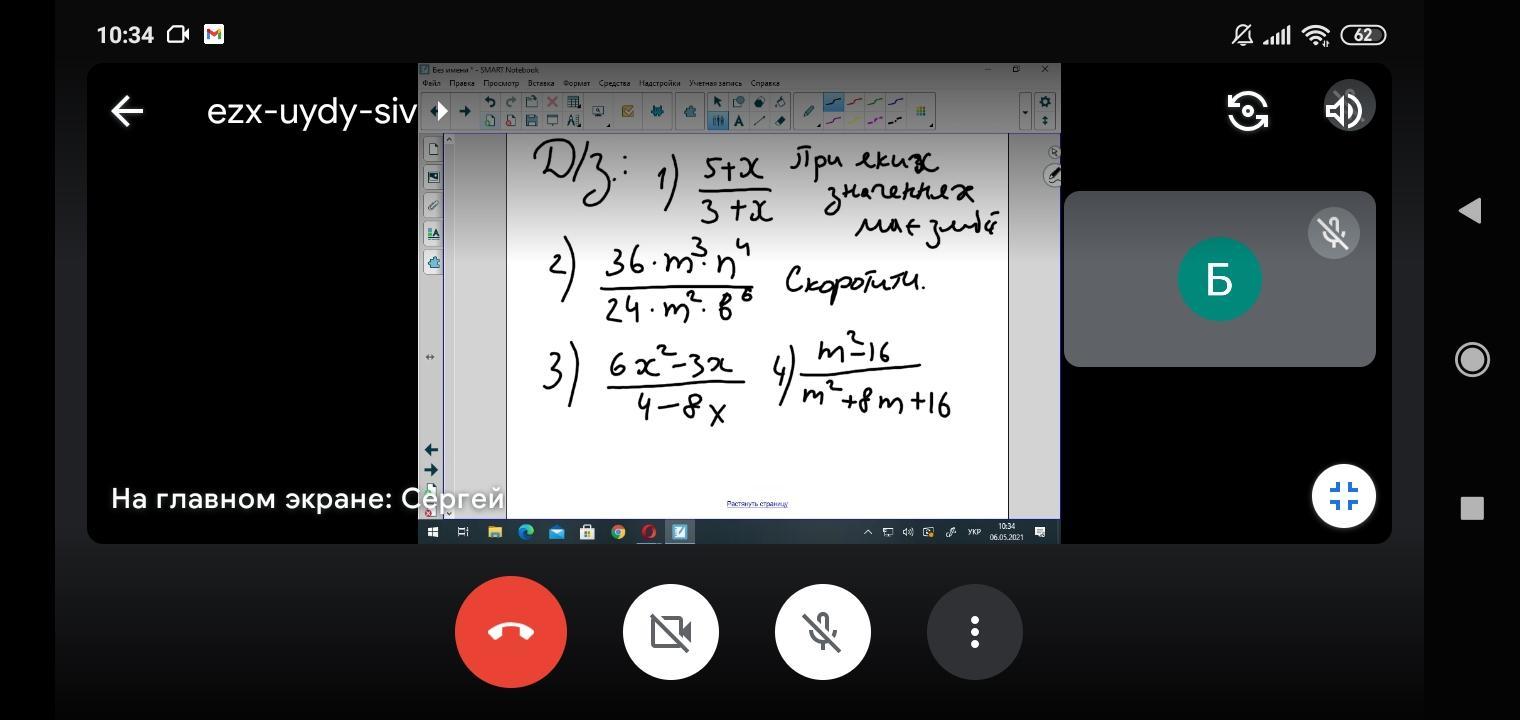 10:34
62
ezx-uydy-siv
Без имени * - SMART Notebook
Файл Правка Просмотр Вставка Формат Средства Надстройки Учетная запись Справка
Д/з.: 1) (5+x)/(3+x) При яких
значеннях
має зміст
2) (36·m³·n⁴)/(24·m²·в⁶) Скоротити.
3) (6x²-3x)/(4-8x) 4) (m²-16)/(m²+8m+16)
Б
На главном экране: Сергей
Растянуть страницу
УКР
10:34
06.05.2021